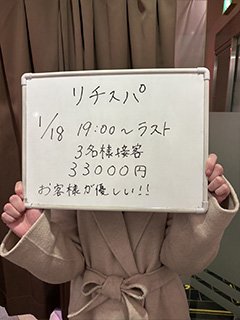 リチスパ
1/18 19:00～ラスト
3名様接客
33000円
お客様が優しい!!